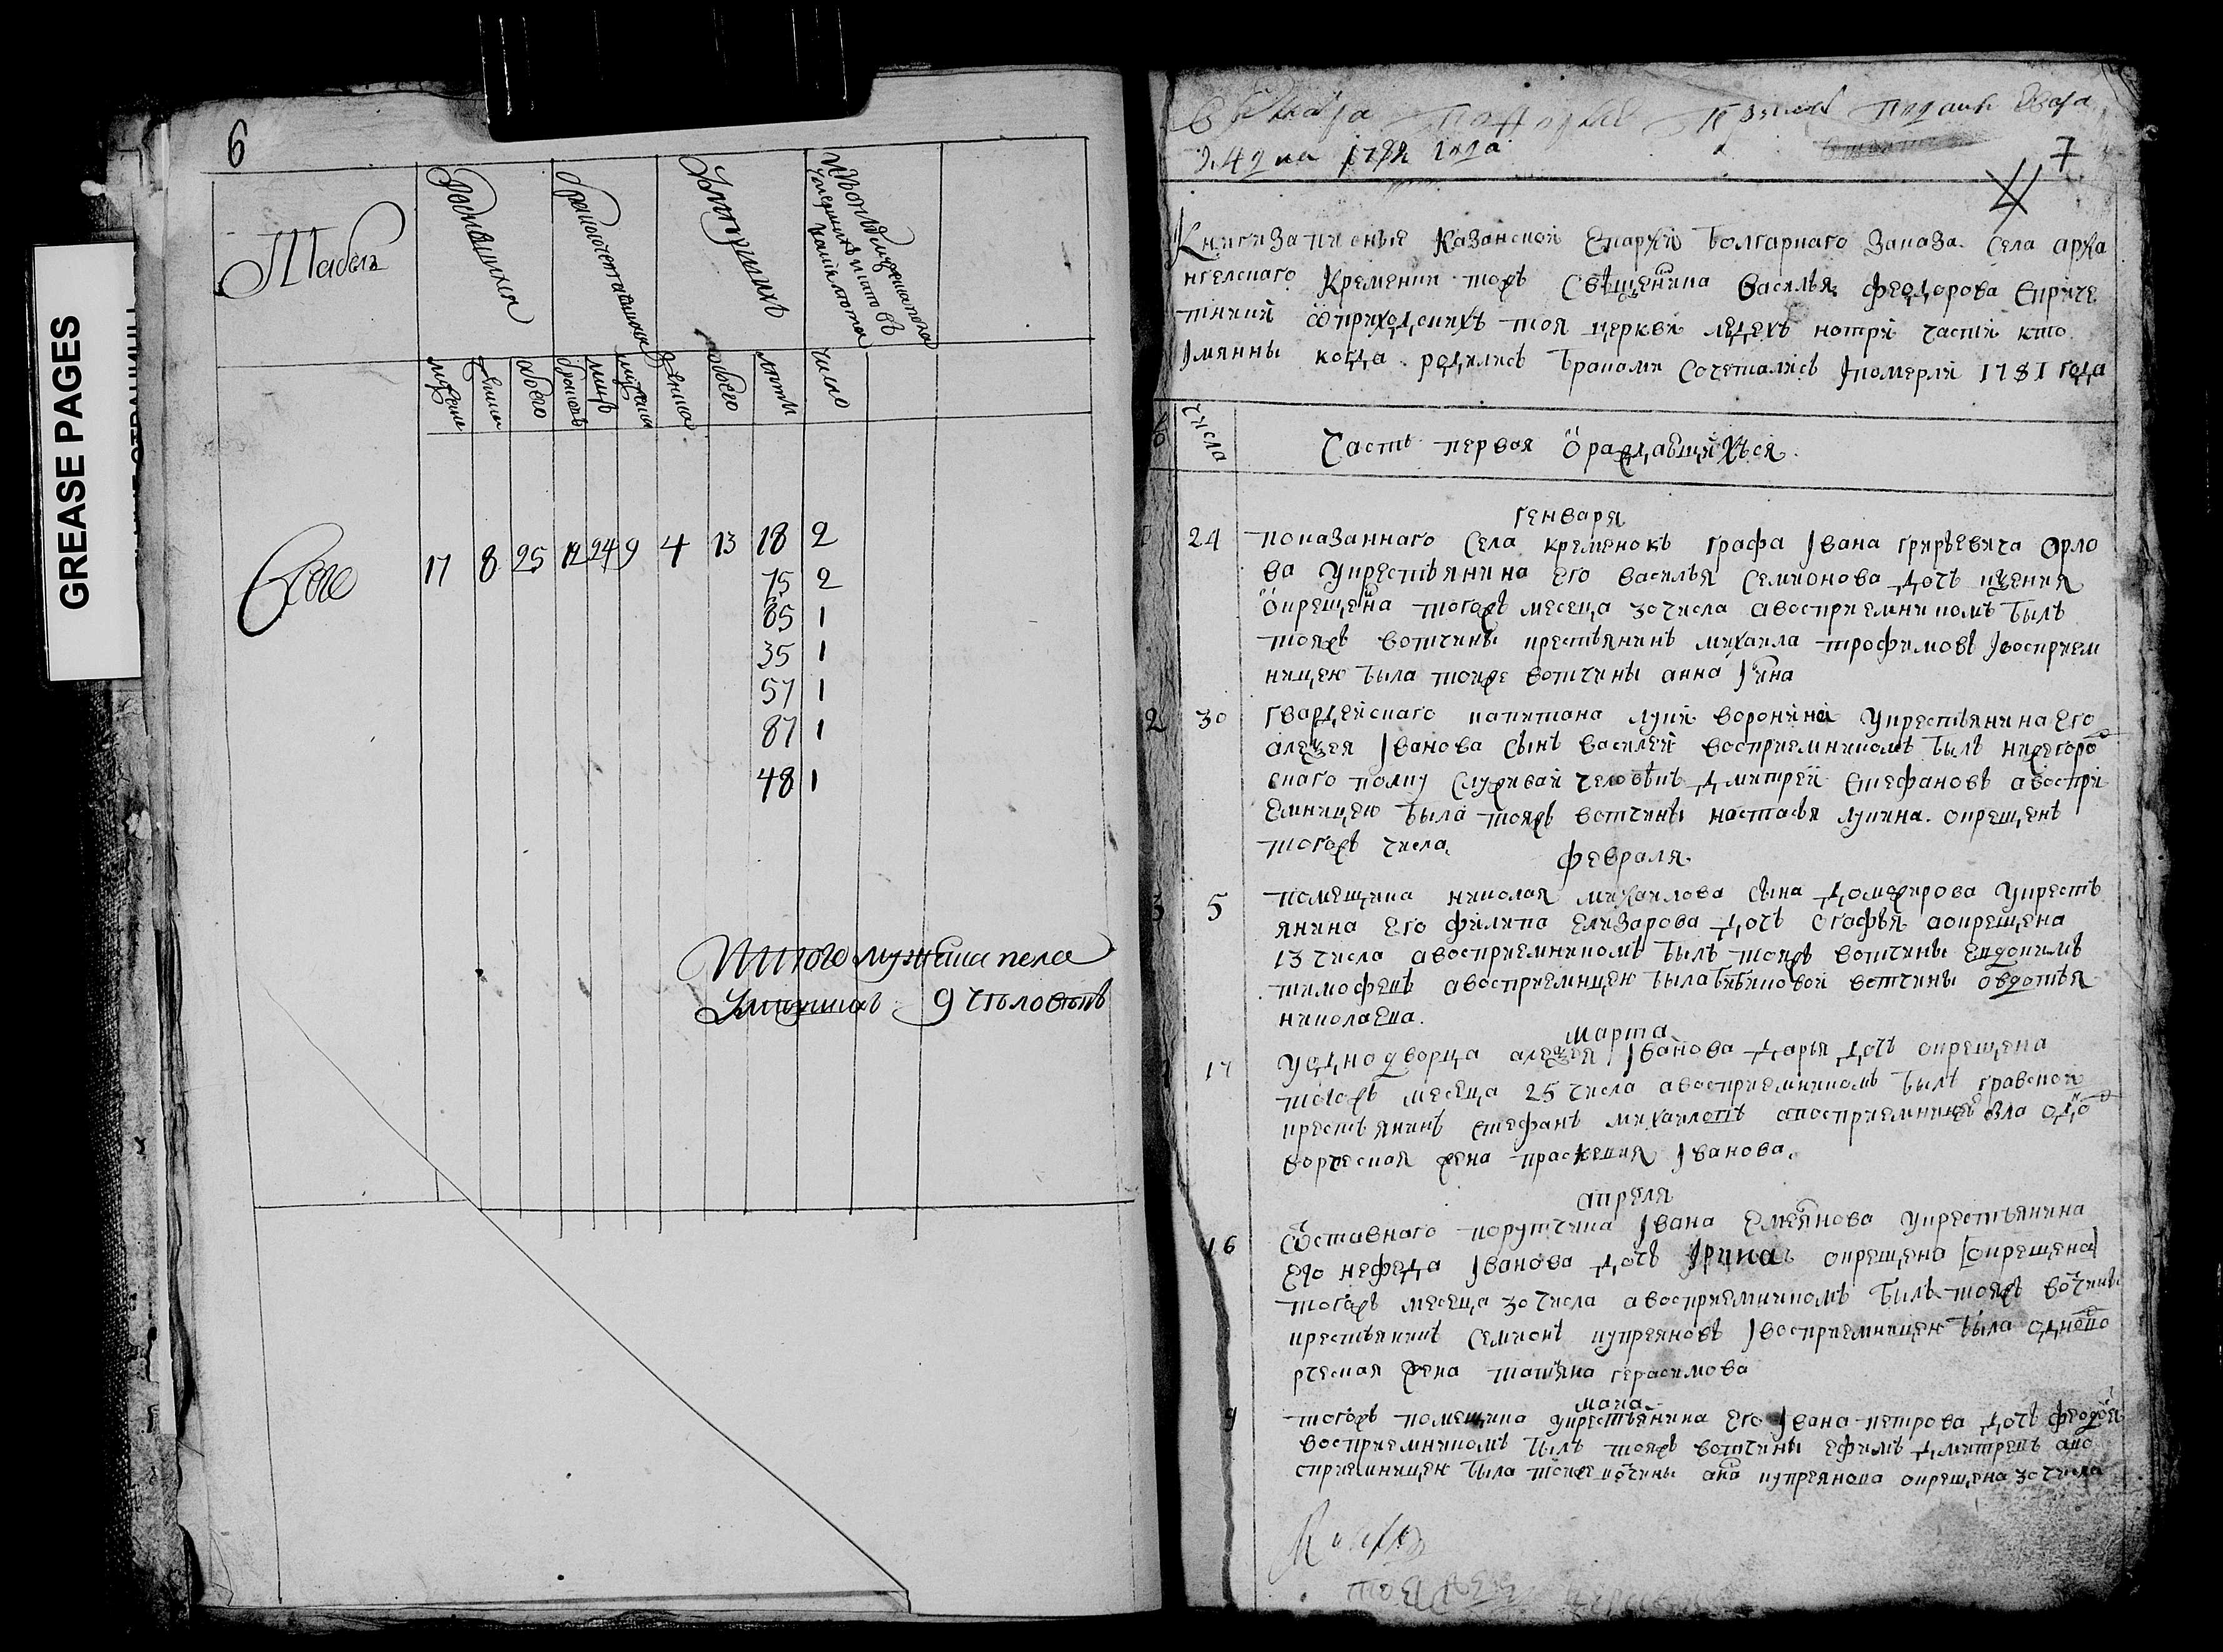 GREASE PAGES
6
Табель
Родившихся
Бракосочетавшихся
Умерших
мужеска
женска
обоего
браков
женска
обоего
лѣты
число
Всего
17 8 25 12 24 9 4 13 18 2
75 2
65 1
35 1
57 1
87 1
48 1
Итого мужеска пола
умерших 9 человѣкъ
7
4
Книги записныя Казанской Епархіи Болгарского заказа села арха
нгелского Кременки тожъ Священника Василья Феодорова Спричe
тники о приходскихъ тоя церкви людехъ на три части кто
Імянны когда родились браками сочетались Іпомерли 1781 года
числа
Часть первая о раждавшихъся.
генваря
24 показаннаго села кременокъ графа Iвана григрьевича орло
ва у крестьянина Его василья семионова дочь ксения
окрещена тогожъ месеца 30 числа а восприемникомъ былъ
тояжъ вотчины крестьянинъ михаила трофимовъ Iвосприем
ницею была тояже вотчины анна
2 30 гвардейскаго капитана луки воронина у крестьянина Его
алеѯея Iванова сынъ василей восприемникомъ былъ нижегоро
скаго полку служивай человѣкъ дмитрей стефановъ а воспри
емницею была тояжъ вотчины настасья лукина. окрещенъ
тогожъ числа
февраля.
3 5 помещика николая михаилова сына домажирова у кресть
янина его филипа елизарова дочь огафья а окрещена
13 числа а восприемникомъ былъ тояжъ вотчины евдокимъ
тимофеевъ а восприемницею была бабиковой вотчины овдотья
николаева.
марта
17 у однодворца алеѯея Iванова дарья дочь окрещена
тогожъ месеца 25 числа а восприемникомъ былъ гравской
крестьянинъ стефанъ михаиловъ авосприемницею была одно
ворческая жена праскевия Iванова.
апреля
16 отставнаго порутчика Iвана Емелянова у крестьянина
его нефеда Iванова дочь Iрина окрещена [окрещена]
тогожъ месеца 30 числа а восприемникомъ былъ тояжъ вочины
крестьянинъ семионъ купреяновъ Iвосприемницею была однодво
рческая жена татьяна герасимова
маиа
9 тогожъ помещика у крестьянина его Iвана петрова дочь феодося
восприемникомъ былъ тояжъ вотчины ефимъ дмитревъ аво
сприемницею была тояже вочины ана купреянова окрещена 30 числа